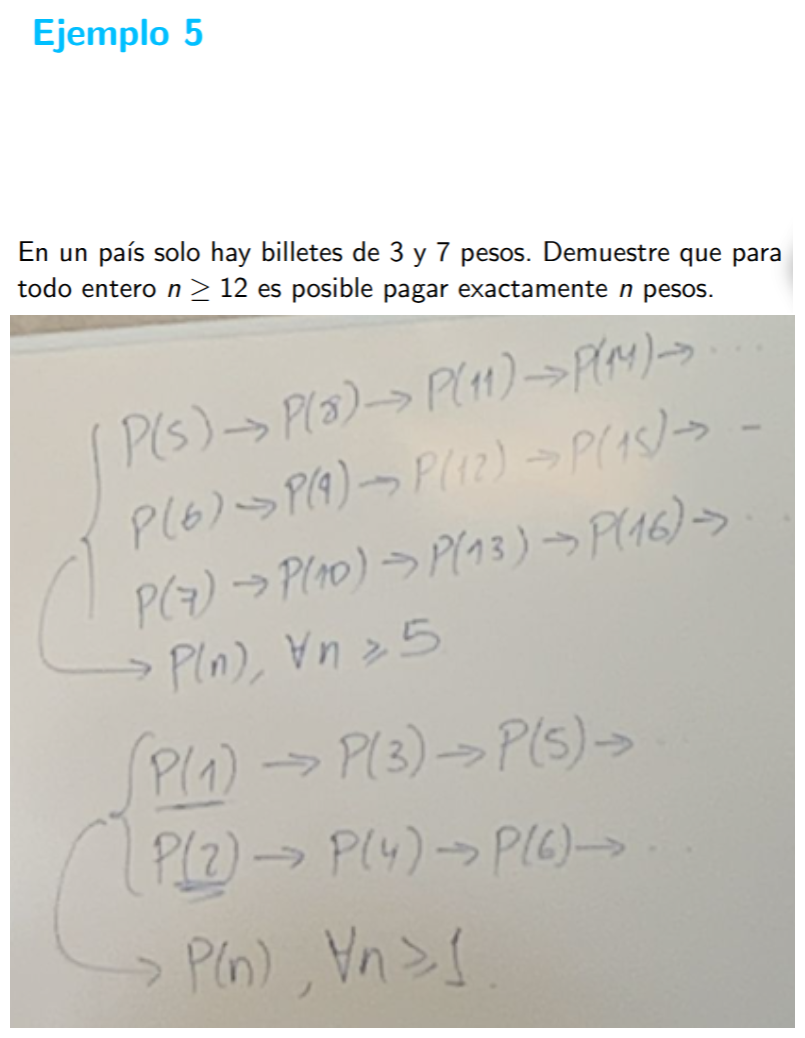 Ejemplo 5
En un país solo hay billetes de 3 y 7 pesos. Demuestre que para
todo entero n ≥ 12 es posible pagar exactamente n pesos.
P(5) → P(8) → P(11) → P(14) → ...
P(6) → P(9) → P(12) → P(15) → -
P(7) → P(10) → P(13) → P(16) → ...
→ P(n), ∀n ≥ 5
P(1) → P(3) → P(5) → ...
P(2) → P(4) → P(6) → ...
→ P(n), ∀n ≥ 1.